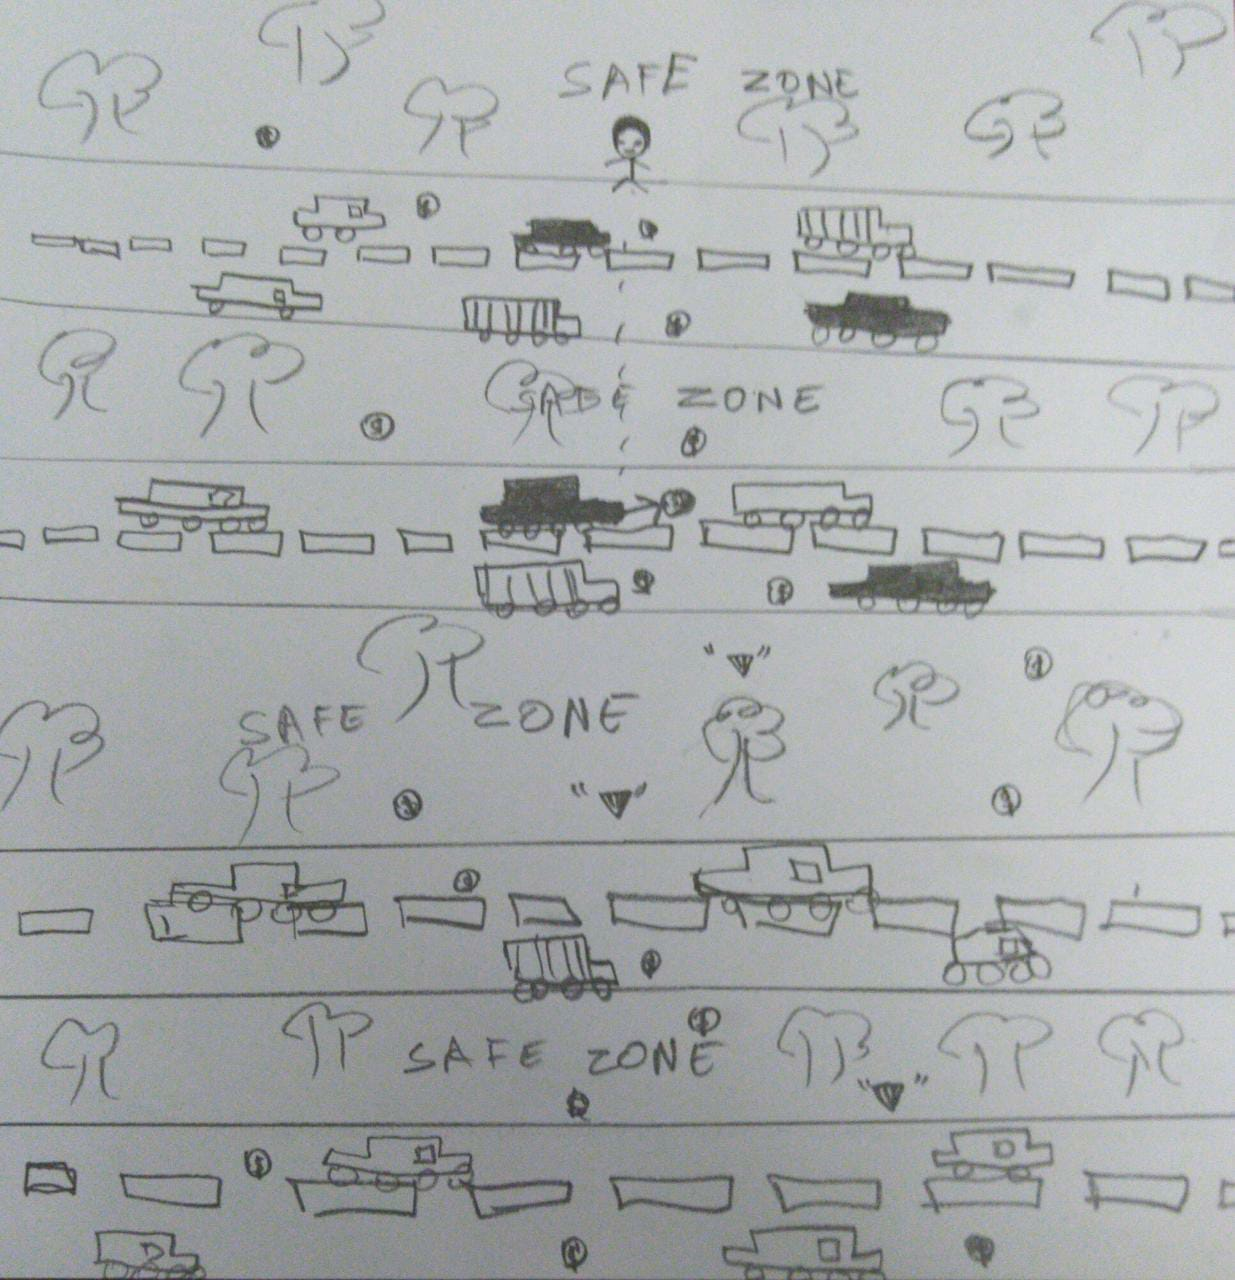 SAFE ZONE
SAFE ZONE
SAFE ZONE
SAFE ZONE